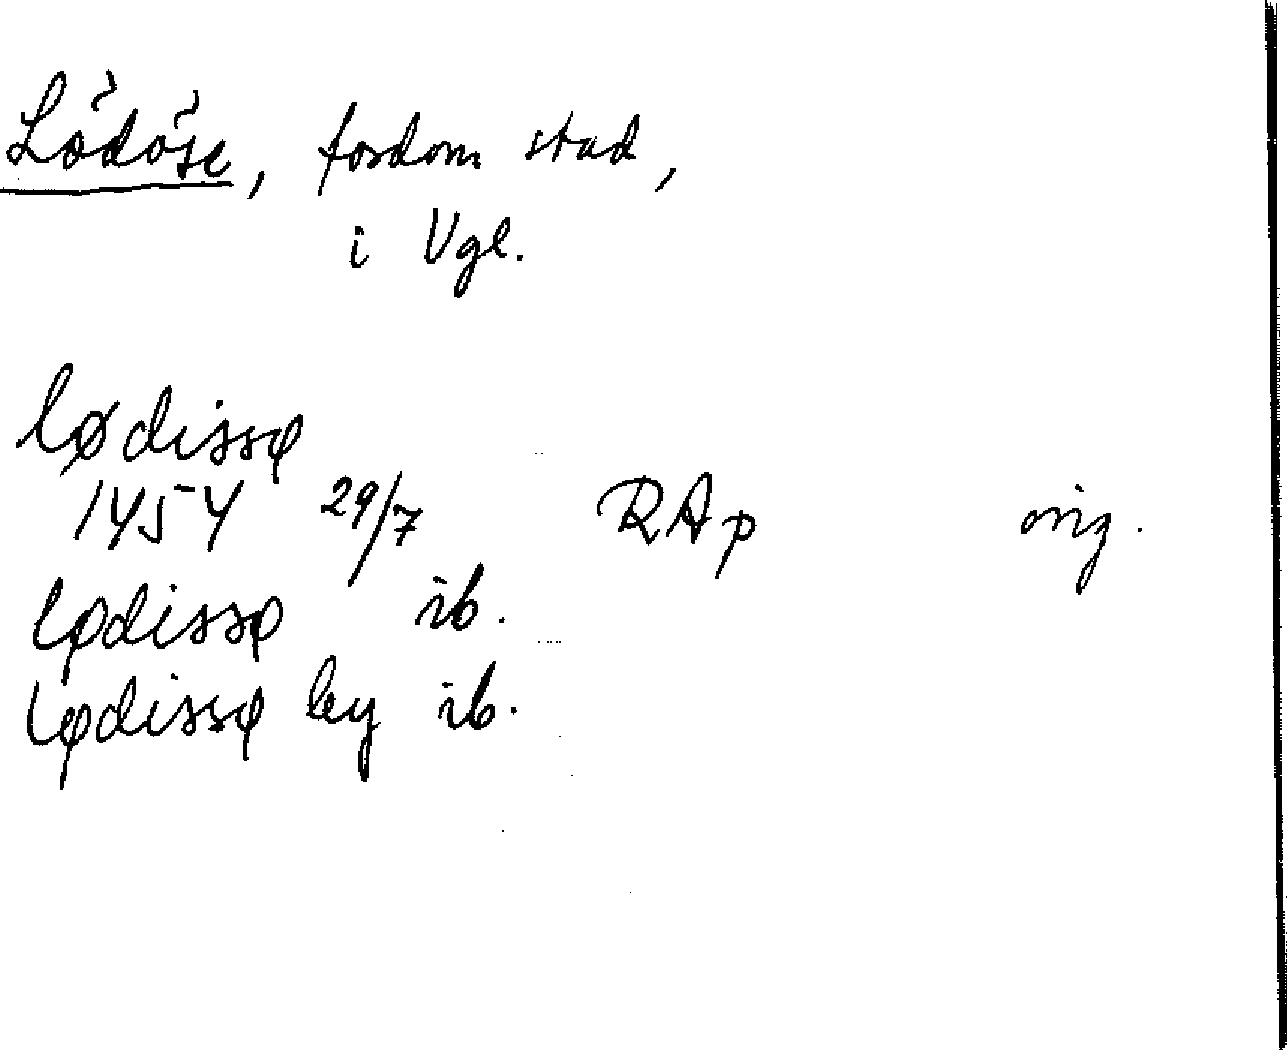 Lödöse, fordom stad,
i Vgl.
lødissø
1454 29/7 RAp orig.
lødissø ib.
lødissø by ib.